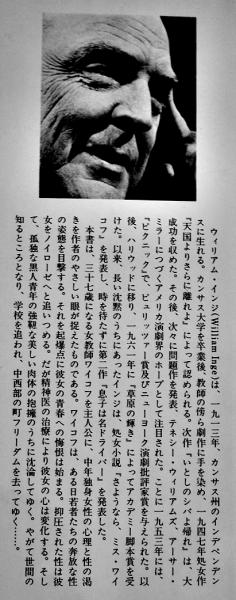 ウィリアム・インジ(William Inge)は、一九一三年、カンザス州のインデペンデン
スに生れる。カンザス大学を卒業後、教師の傍ら劇作に手を染め、一九四七年処女作
『天国よりさらに離れよ』によって認められる。次作『いとしのシバよ帰れ』は、大
成功を収めた。その後、次々に問題作を発表、テネシー・ウィリアムズ、アーサー・
ミラーにつづくアメリカ演劇界のホープとして注目された。ことに一九五三年には、
『ピクニック』で、ピュリッツァー賞及びニューヨーク演劇批評家賞を与えられた。以
後、ハリウッドに移り、一九六一年に『草原の輝き』によってアカデミー脚本賞を受
けた。以来、長い沈黙のうちにあったインジは、処女小説『さようなら、ミス・ワイ
コフ』を発表し、時を待たずに第二作『息子は名ドライバー』を発表した。
本書は、三十七歳になる女教師ワイコフを主人公に、中年独身女性の心理と性の渇
きを作者のやさしい眼が捉えたものである。ワイコフは、ある日若者たちの奔放な性
の姿態を目撃する。それを起爆点に彼女の青春への悔恨は始まる。抑圧された性は彼
女をノイローゼへと追いつめる。だが精神医の治療により彼女の心は変化する。そし
て、孤独な黒人青年の強靭な美しい肉体の抱擁のうちに沈淪してゆく。やがて世間の
知るところとなり、学校を追われ、中西部の町フリーダムを去ってゆく……。